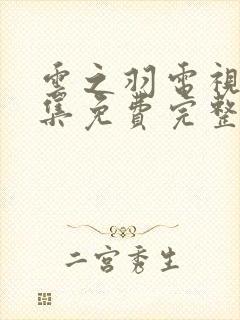 雲之羽電視
集免費完整
二宮秀生